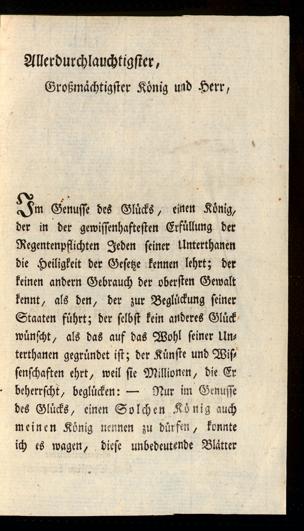 Allerdurchlauchtigster,
Großmächtigster König und Herr,
Im Genusse des Glücks, einen König,
der in der gewissenhaftesten Erfüllung der
Regentenpflichten Jeden seiner Unterthanen
die Heiligkeit der Gesetze kennen lehrt; der
keinen andern Gebrauch der obersten Gewalt
kennt, als den, der zur Beglückung seiner
Staaten führt; der selbst kein anderes Glück
wünscht, als das auf das Wohl seiner Un-
terthanen gegründet ist; der Künste und Wis-
senschaften ehrt, weil sie Millionen, die Er
beherrscht, beglücken: — Nur im Genusse
des Glücks, einen Solchen König auch
meinen König nennen zu dürfen, konnte
ich es wagen, diese unbedeutende Blätter